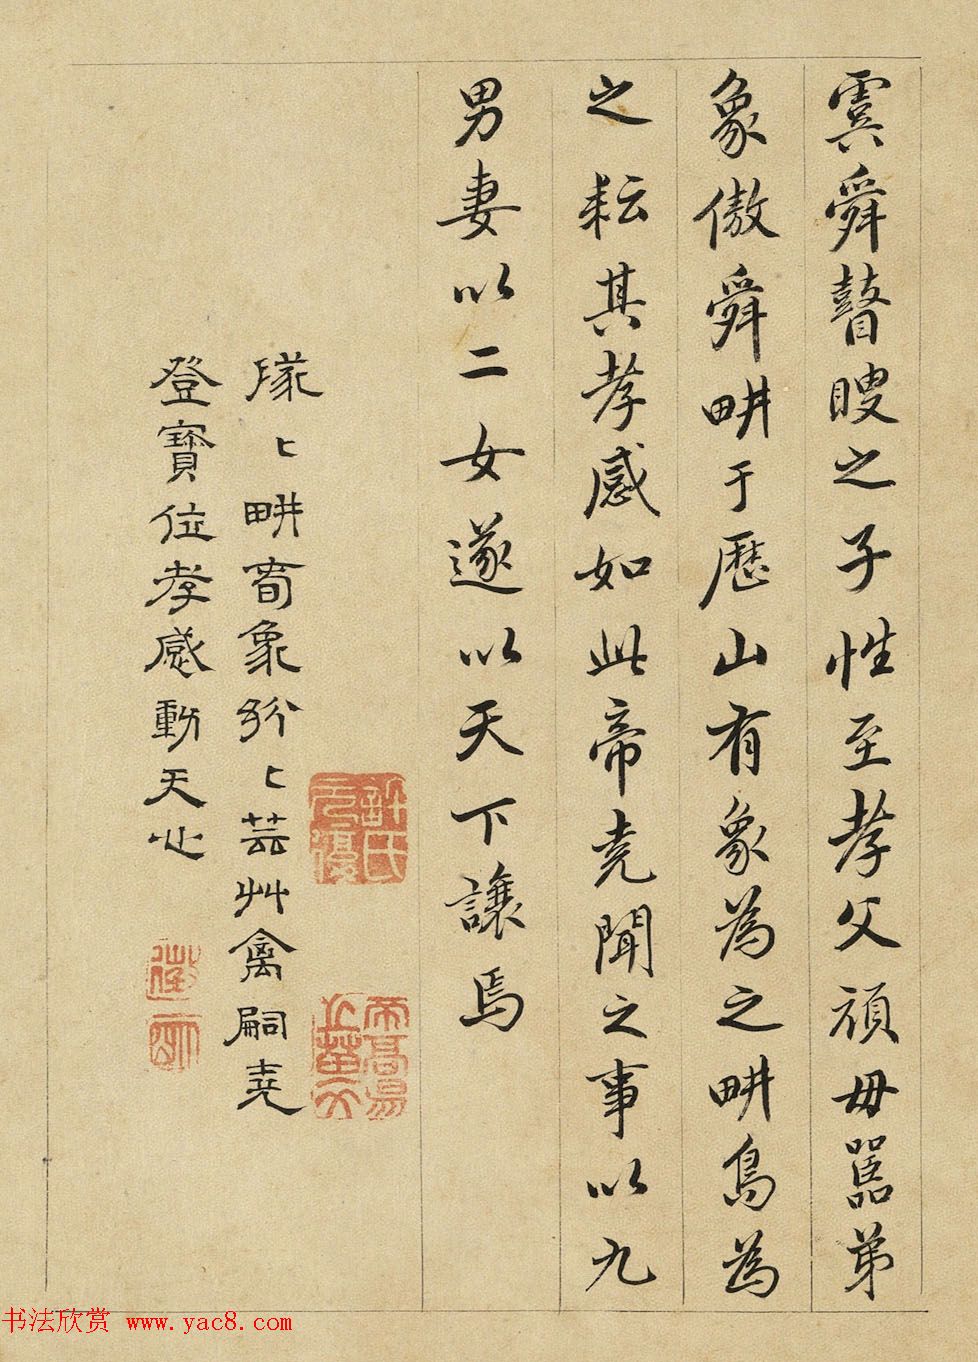 虞舜瞽瞍之子性至孝父頑母嚚弟
象傲舜畊于歷山有象為之畊鳥為
之耘其孝感如此帝堯聞之事以九
男妻以二女遂以天下讓焉
隊〻畊畬象紛〻芸艸禽嗣堯
登寶位孝感動天心
許氏
书法欣赏 www.yac8.com